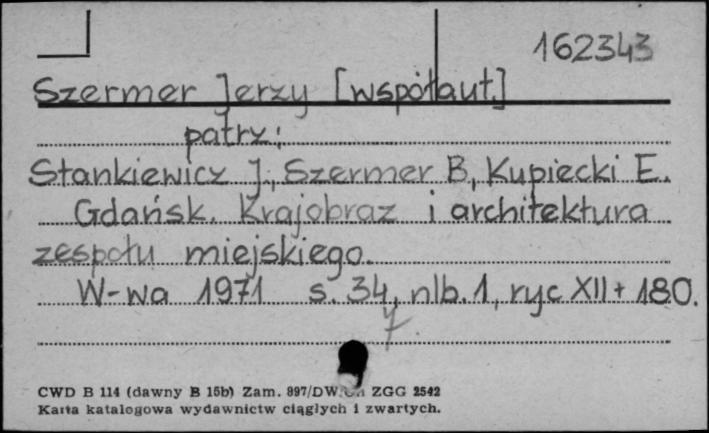 162343
Szermer Jerzy [współaut.]
patrz:
Stankiewicz J., Szermer B., Kupiecki E.
Gdańsk. Krajobraz i architektura
zespołu miejskiego.
W-wa 1971 s. 34, nlb. 1, ryc XII + 180.
7.
CWD B 114 (dawny B 15b) Zam. 897/DW ZGG 2542
Karta katalogowa wydawnictw ciągłych i zwartych.